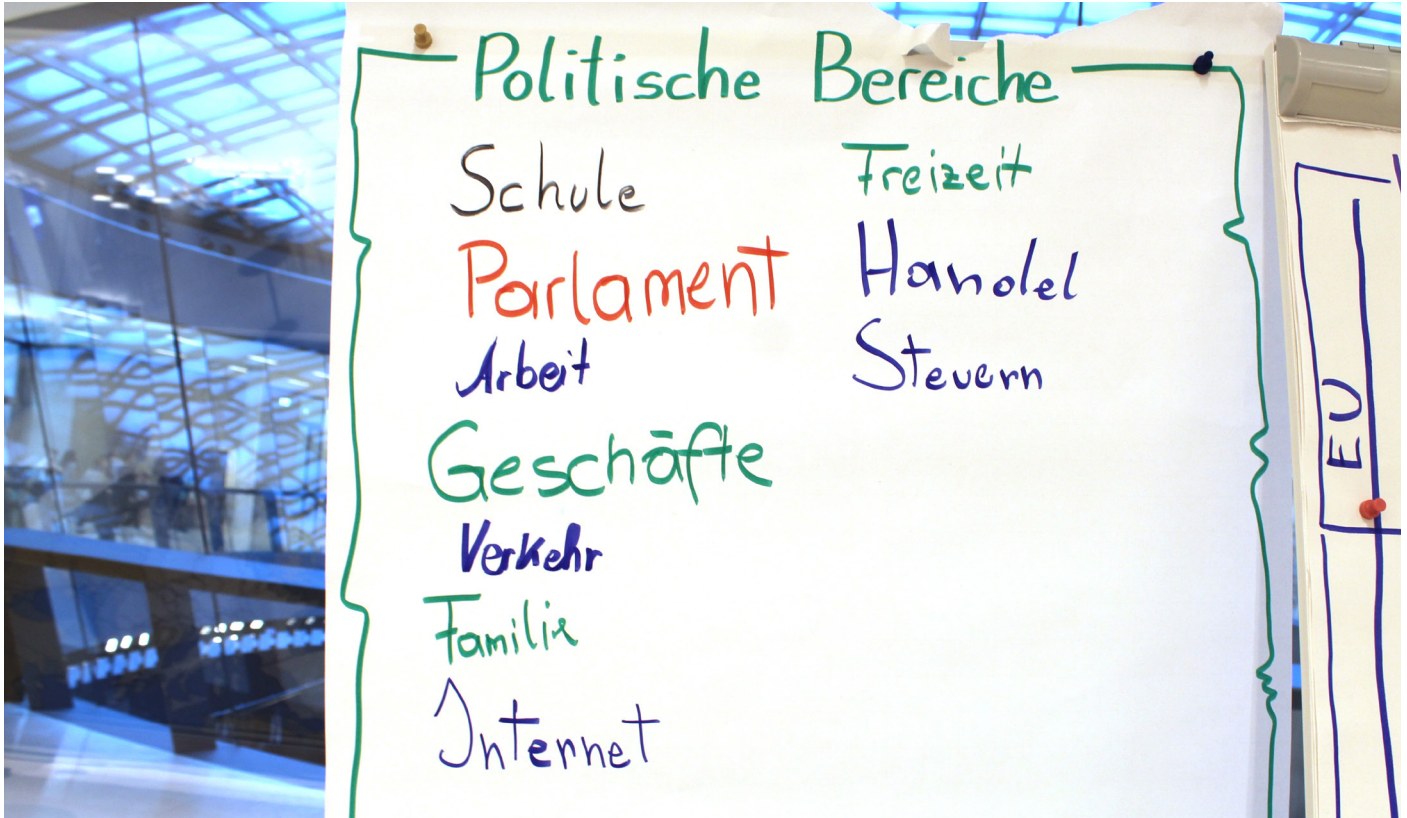 Politische Bereiche
Schule
Parlament
Arbeit
Geschäfte
Verkehr
Familie
Internet
Freizeit
Handel
Steuern
EU